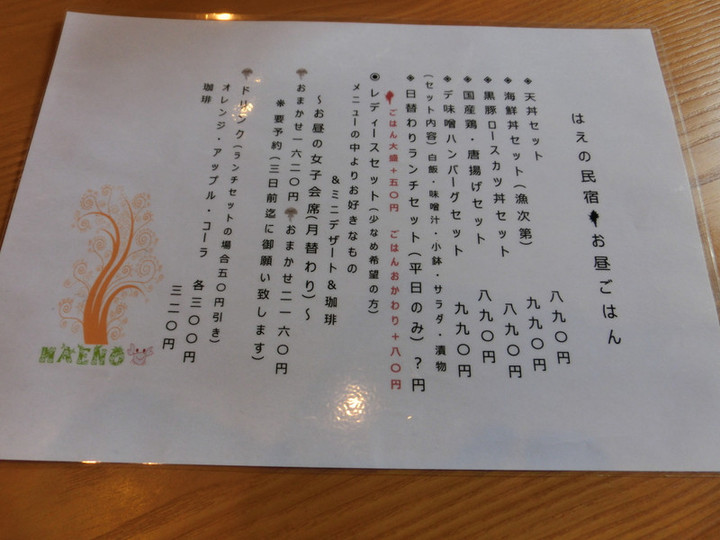 はえの民宿 お昼ごはん
◈天丼セット 八九〇円
◈海鮮丼セット(漁次第) 九九〇円
◈黒豚ロースカツ丼セット 八九〇円
◈国産鶏・唐揚げセット 八九〇円
◈デミ味噌ハンバーグセット 九九〇円
(セット内容)白飯・味噌汁・小鉢・サラダ・漬物
◈日替わりランチセット(平日のみ)?円
ごはん大盛+五〇円 ごはんおかわり+八〇円
◉レディースセット(少なめ希望の方)
メニューの中よりお好きなもの
&ミニデザート&珈琲
~お昼の女子会席(月替わり)~
おまかせ一六二〇円 おまかせ二一六〇円
※要予約(三日前迄に御願い致します)
ドリンク(ランチセットの場合五〇円引き)
オレンジ・アップル・コーラ 各三〇〇円
珈琲 三二〇円
HAENO